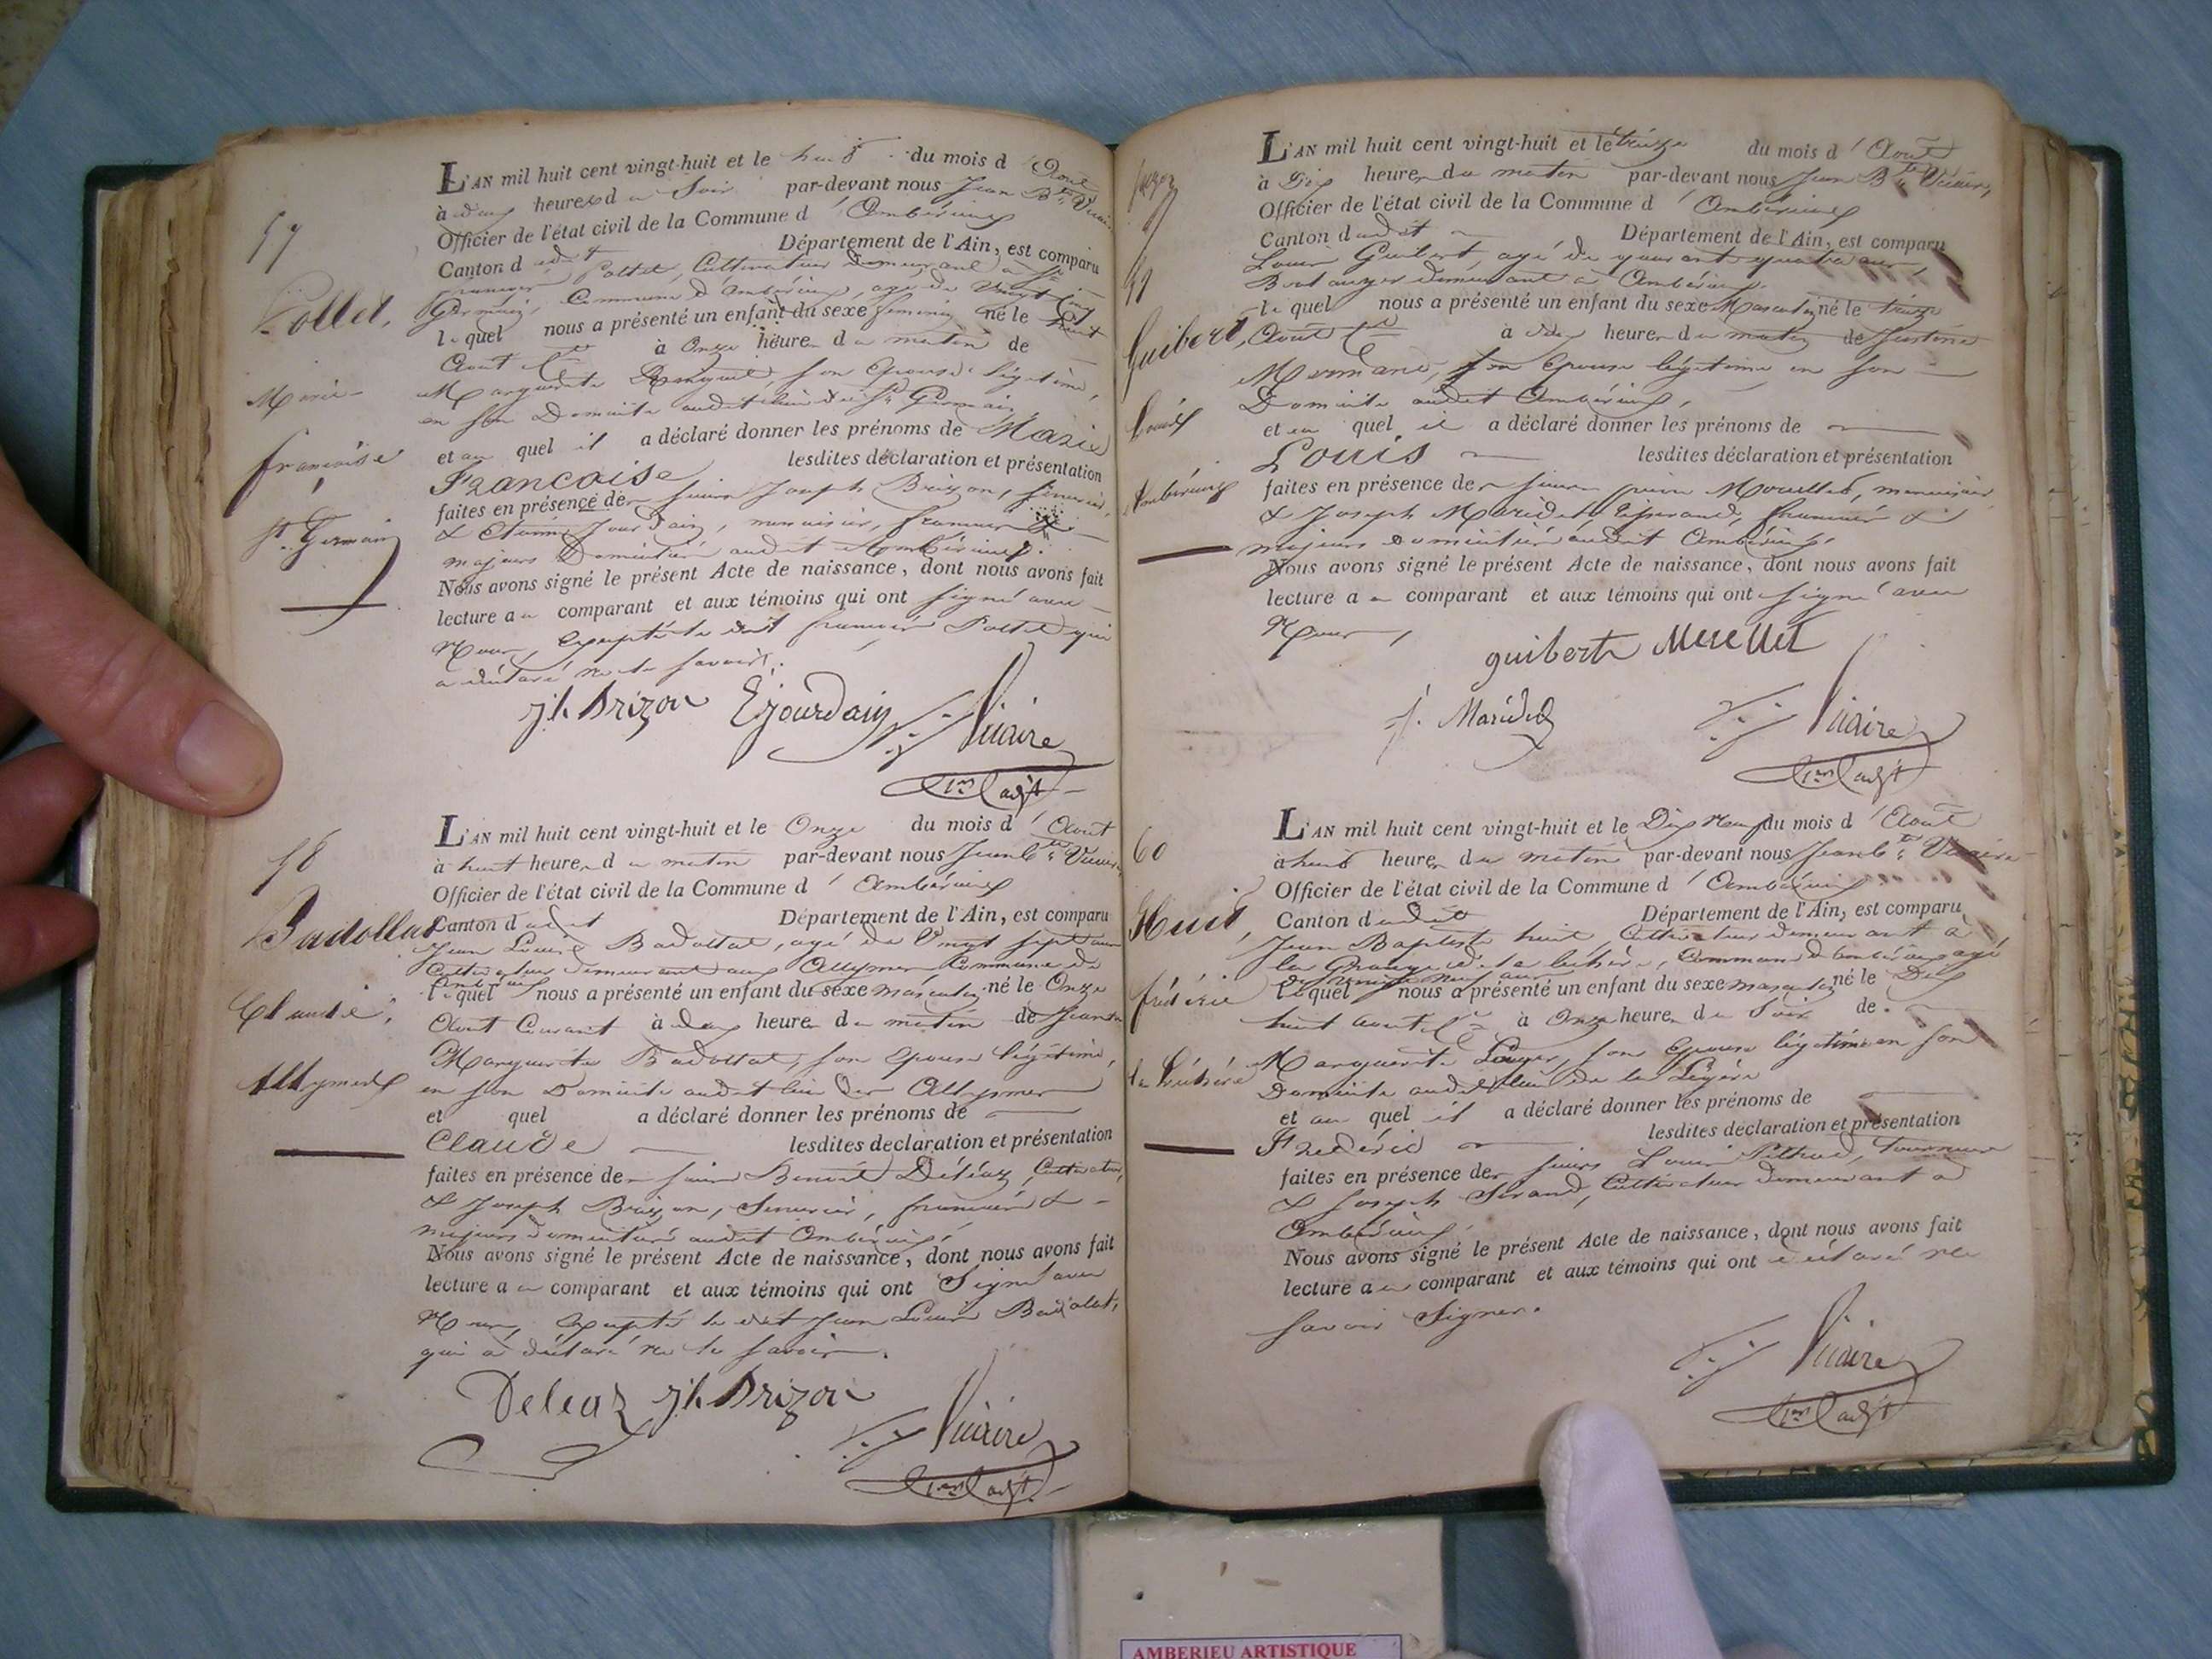 57
Pollet,
Marie
françoise
St. Germain
L'AN mil huit cent vingt-huit et le huit du mois d'Aout
à deux heures du Soir par-devant nous Jean Bte Vicaire
Officier de l'état civil de la Commune d'Ambérieux
Canton dudit Département de l'Ain, est comparu
françois Pollet, Cultivateur demeurant a St
Germain, Commune d'Ambérieux, agé de Vingt Cinq
lequel nous a présenté un enfant du sexe feminin né le huit
Aout à Onze heures du matin de
Marguerite son Epouse légitime,
en son Domicile audit lieu de St Germain,
et au quel il a déclaré donner les prénoms de Marie
Francoise lesdites déclaration et présentation
faites en présence des sieurs Joseph Brizon, serrurier,
& Etienne Jourdain, menuisier, francais &
majeurs Domiciliés audit Ambérieux.
Nous avons signé le présent Acte de naissance, dont nous avons fait
lecture au comparant et aux témoins qui ont signé avec
Nous, Excepté le dit francois Pollet qui
a déclaré ne le savoir.
jh. Brizon Ejourdain Vicaire
1er adjt
58
Badollat
Claude,
Allymes
L'AN mil huit cent vingt-huit et le Onze du mois d'Aout
à huit heures du matin par-devant nous Jean Bte Vicaire
Officier de l'état civil de la Commune d'Ambérieux
Canton dudit Département de l'Ain, est comparu
Jean Louis Badollat, agé de Vingt sept ans
Cultivateur demeurant aux Allymes Commune de
Ambérieux
lequel nous a présenté un enfant du sexe masculin né le Onze
Aout Courant à deux heures du matin de Jeanne
Marguerite Badollat, son épouse légitime,
en son Domicile audit lieu des Allymes
et quel a déclaré donner les prénoms de
Claude lesdites declaration et présentation
faites en présence des sieurs Benoit Déléaz, Cultivateur,
& Joseph Brizon, Serrurier, francais &
majeurs domiciliés audit Ambérieux,
Nous avons signé le présent Acte de naissance, dont nous avons fait
lecture au comparant et aux témoins qui ont Signé avec
Nous, Excepté le dit Jean Louis Badolat,
qui a déclaré ne le savoir.
Deleaz jh. Brizon Vicaire
1er adjt.
59
Guibert,
Louis
Ambérieux
L'AN mil huit cent vingt-huit et le treize du mois d'Aout
à Dix heures du matin par-devant nous Jean Bte Vicaire,
Officier de l'état civil de la Commune d'Ambérieux
Canton dudit Département de l'Ain, est comparu
Louis Guibert, agé de quarante quatre ans,
Boulanger demeurant a Ambérieux.
lequel nous a présenté un enfant du sexe Masculin né le treize
Aout à heures du matin de Justine
Mermand, son Epouse légitime en son
Domicile audit Ambérieux,
et au quel il a déclaré donner les prénoms de
Louis lesdites déclaration et présentation
faites en présence des sieurs pierre menuisier
& Joseph francais &
majeurs domiciliés audit Ambérieux,
Nous avons signé le présent Acte de naissance, dont nous avons fait
lecture au comparant et aux témoins qui ont signé avec
Nous,
guibert
Vicaire
1er adjt
60
Huit,
frédéric
L'AN mil huit cent vingt-huit et le Dix Neuf du mois d'Aout
à huit heures du matin par-devant nous Jean Bte Vicaire
Officier de l'état civil de la Commune d'Ambérieux
Canton dudit Département de l'Ain, est comparu
Jean Baptiste huit, Cultivateur demeurant à
la Grange de la Commune d'Ambérieux agé
lequel nous a présenté un enfant du sexe masculin né le Dix
huit aout à Onze heures du Soir de
Marguerite son Epouse légitime en son
Domicile audit lieu de la
et au quel il a déclaré donner les prénoms de
Frederic lesdites déclaration et présentation
faites en présence des sieurs Louis Tourneur
& Joseph Serand, Cultivateur demeurant a
Ambérieux,
Nous avons signé le présent Acte de naissance, dont nous avons fait
lecture au comparant et aux témoins qui ont déclaré ne
savoir Signer.
Vicaire
1er adjt
AMBERIEU ARTISTIQUE